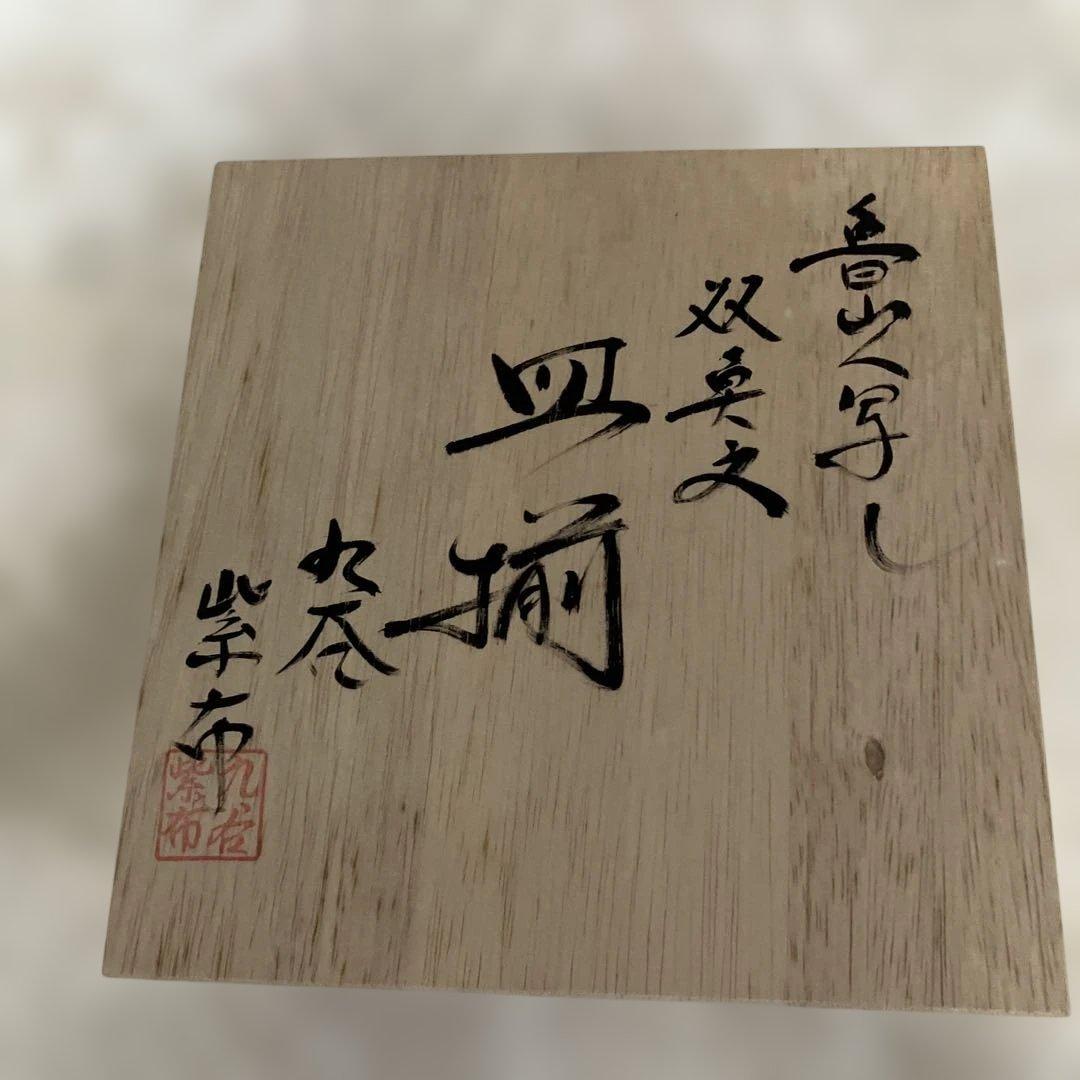 魯山人写し
双魚文
皿揃
九谷
紫布
九谷
紫布